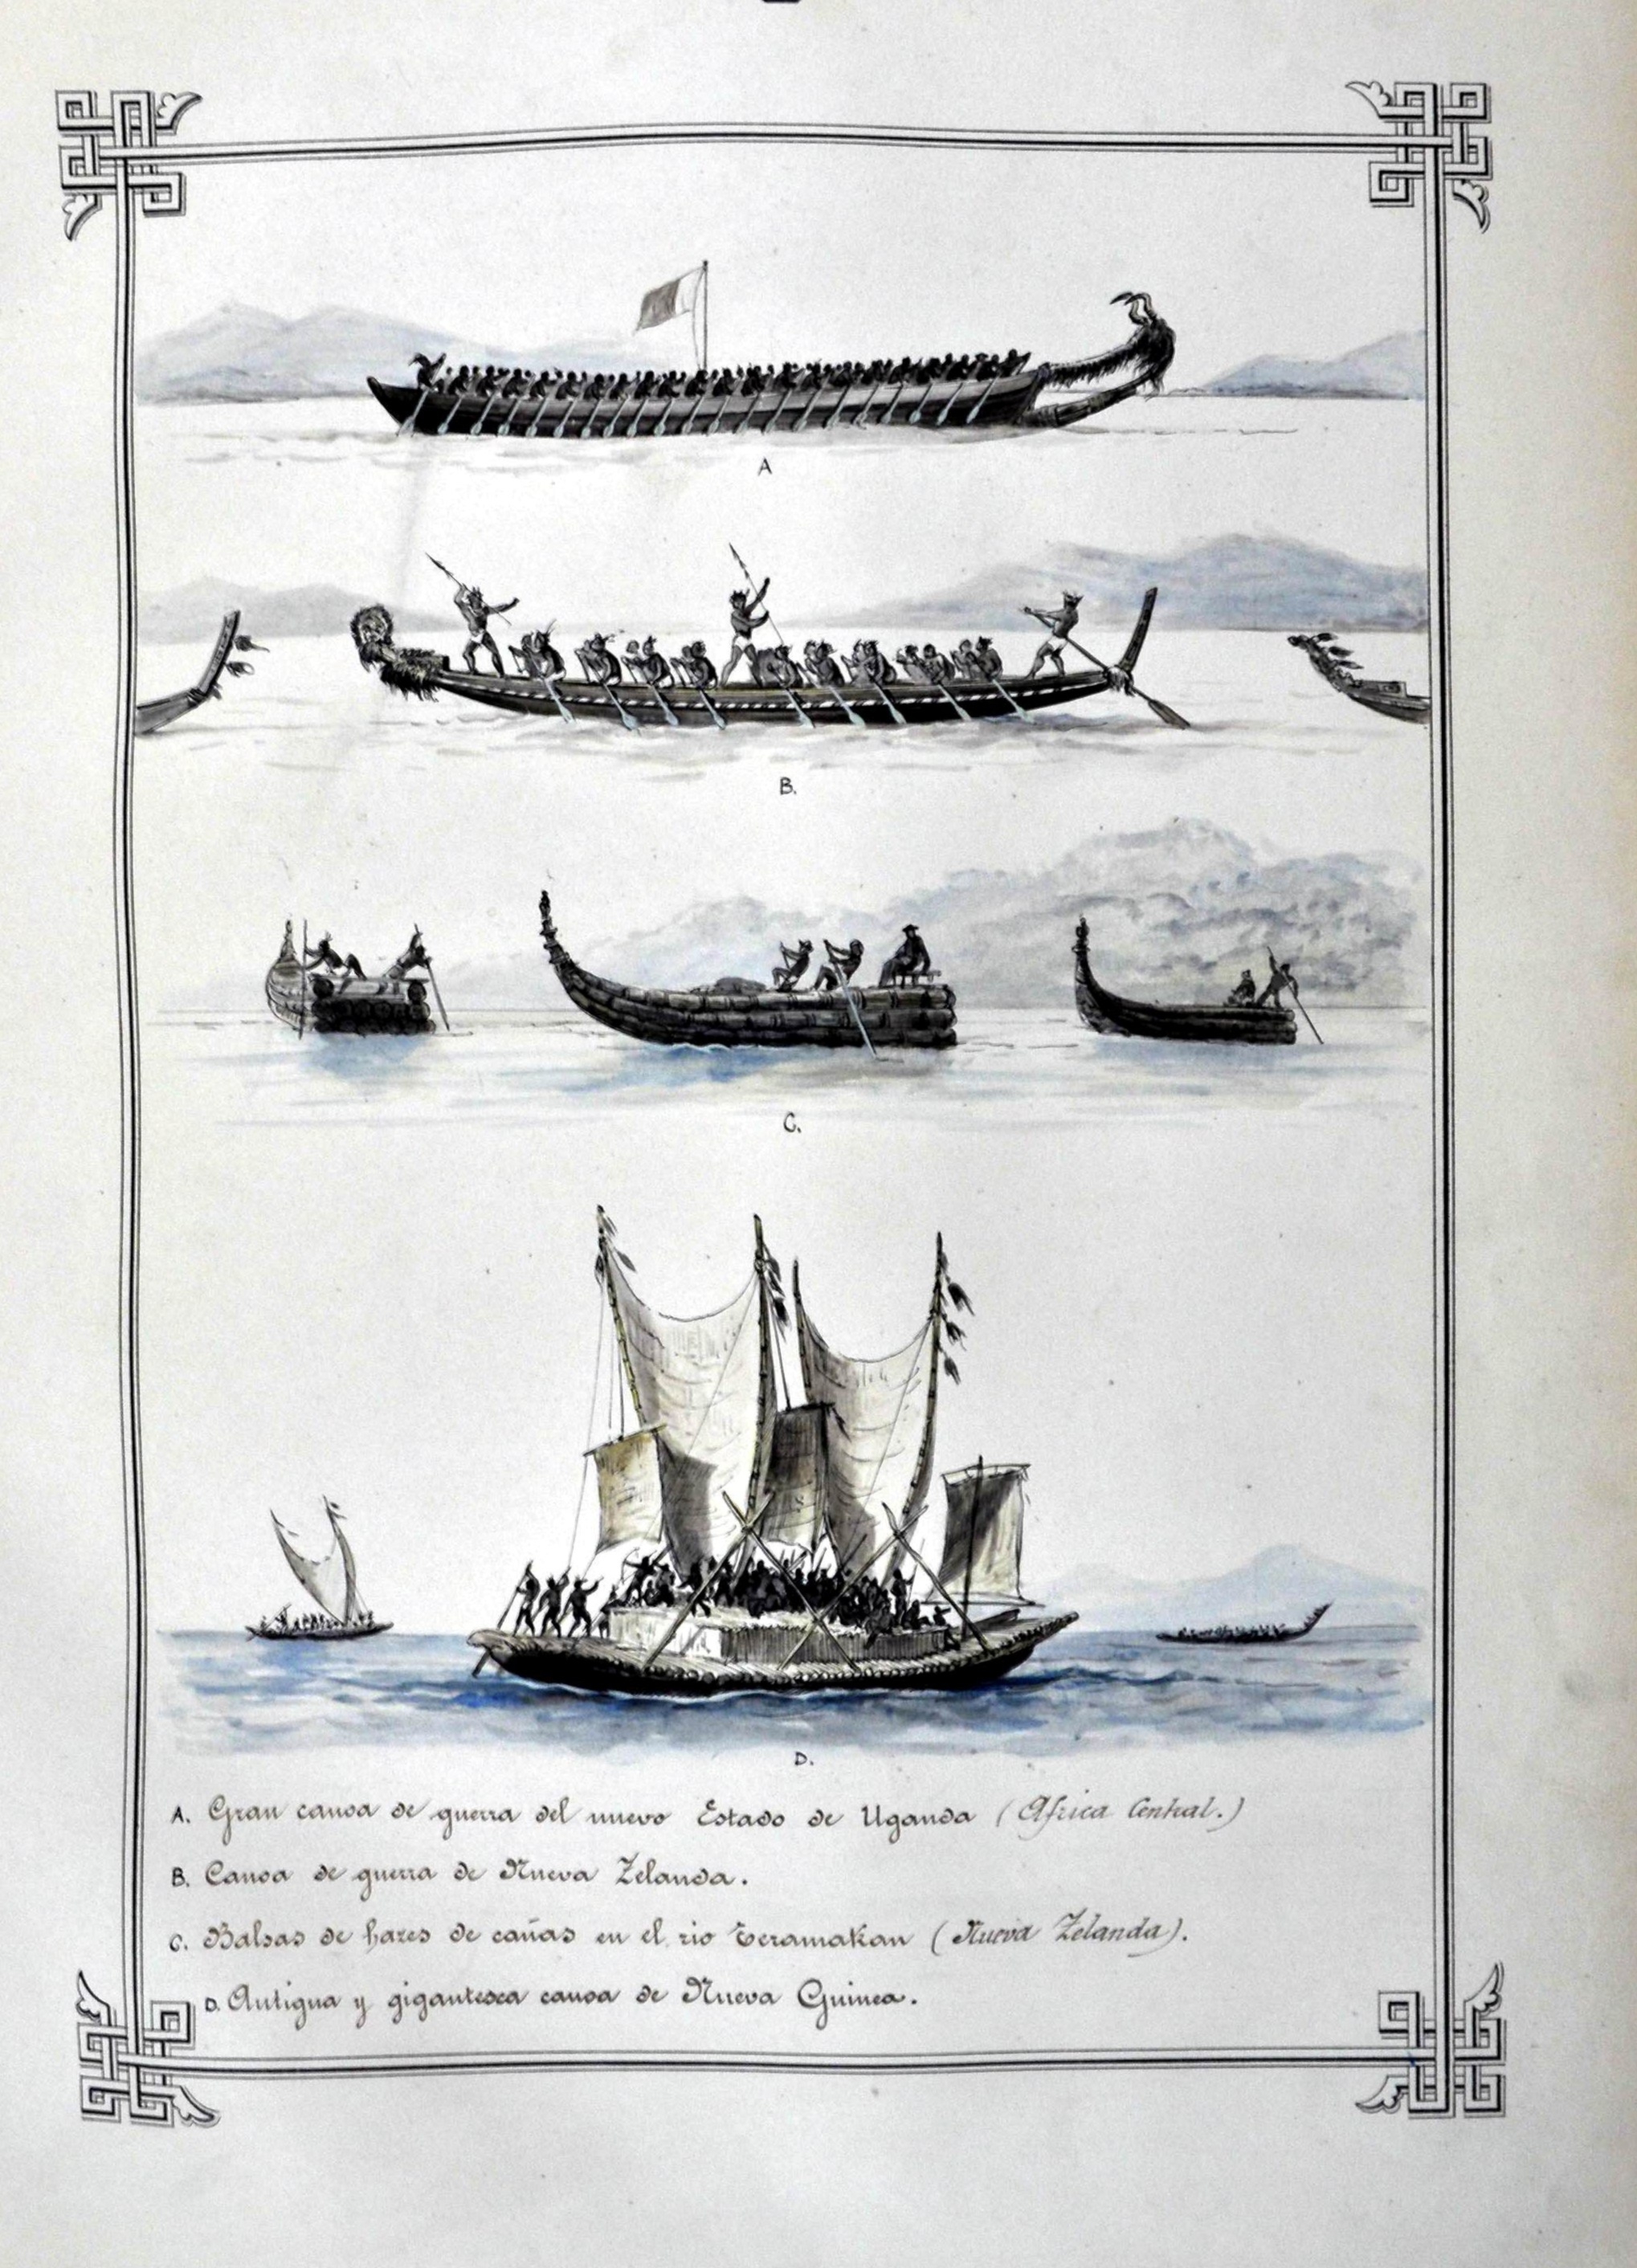 A
B.
C.
D.
A. Gran canoa de guerra del nuevo Estado de Uganda (Africa Central.)
B. Canoa de guerra de Nueva Zelanda.
C. Balsas de hazes de cañas en el rio Teramakan (Nueva Zelanda).
D. Antigua y gigantesca canoa de Nueva Guinea.